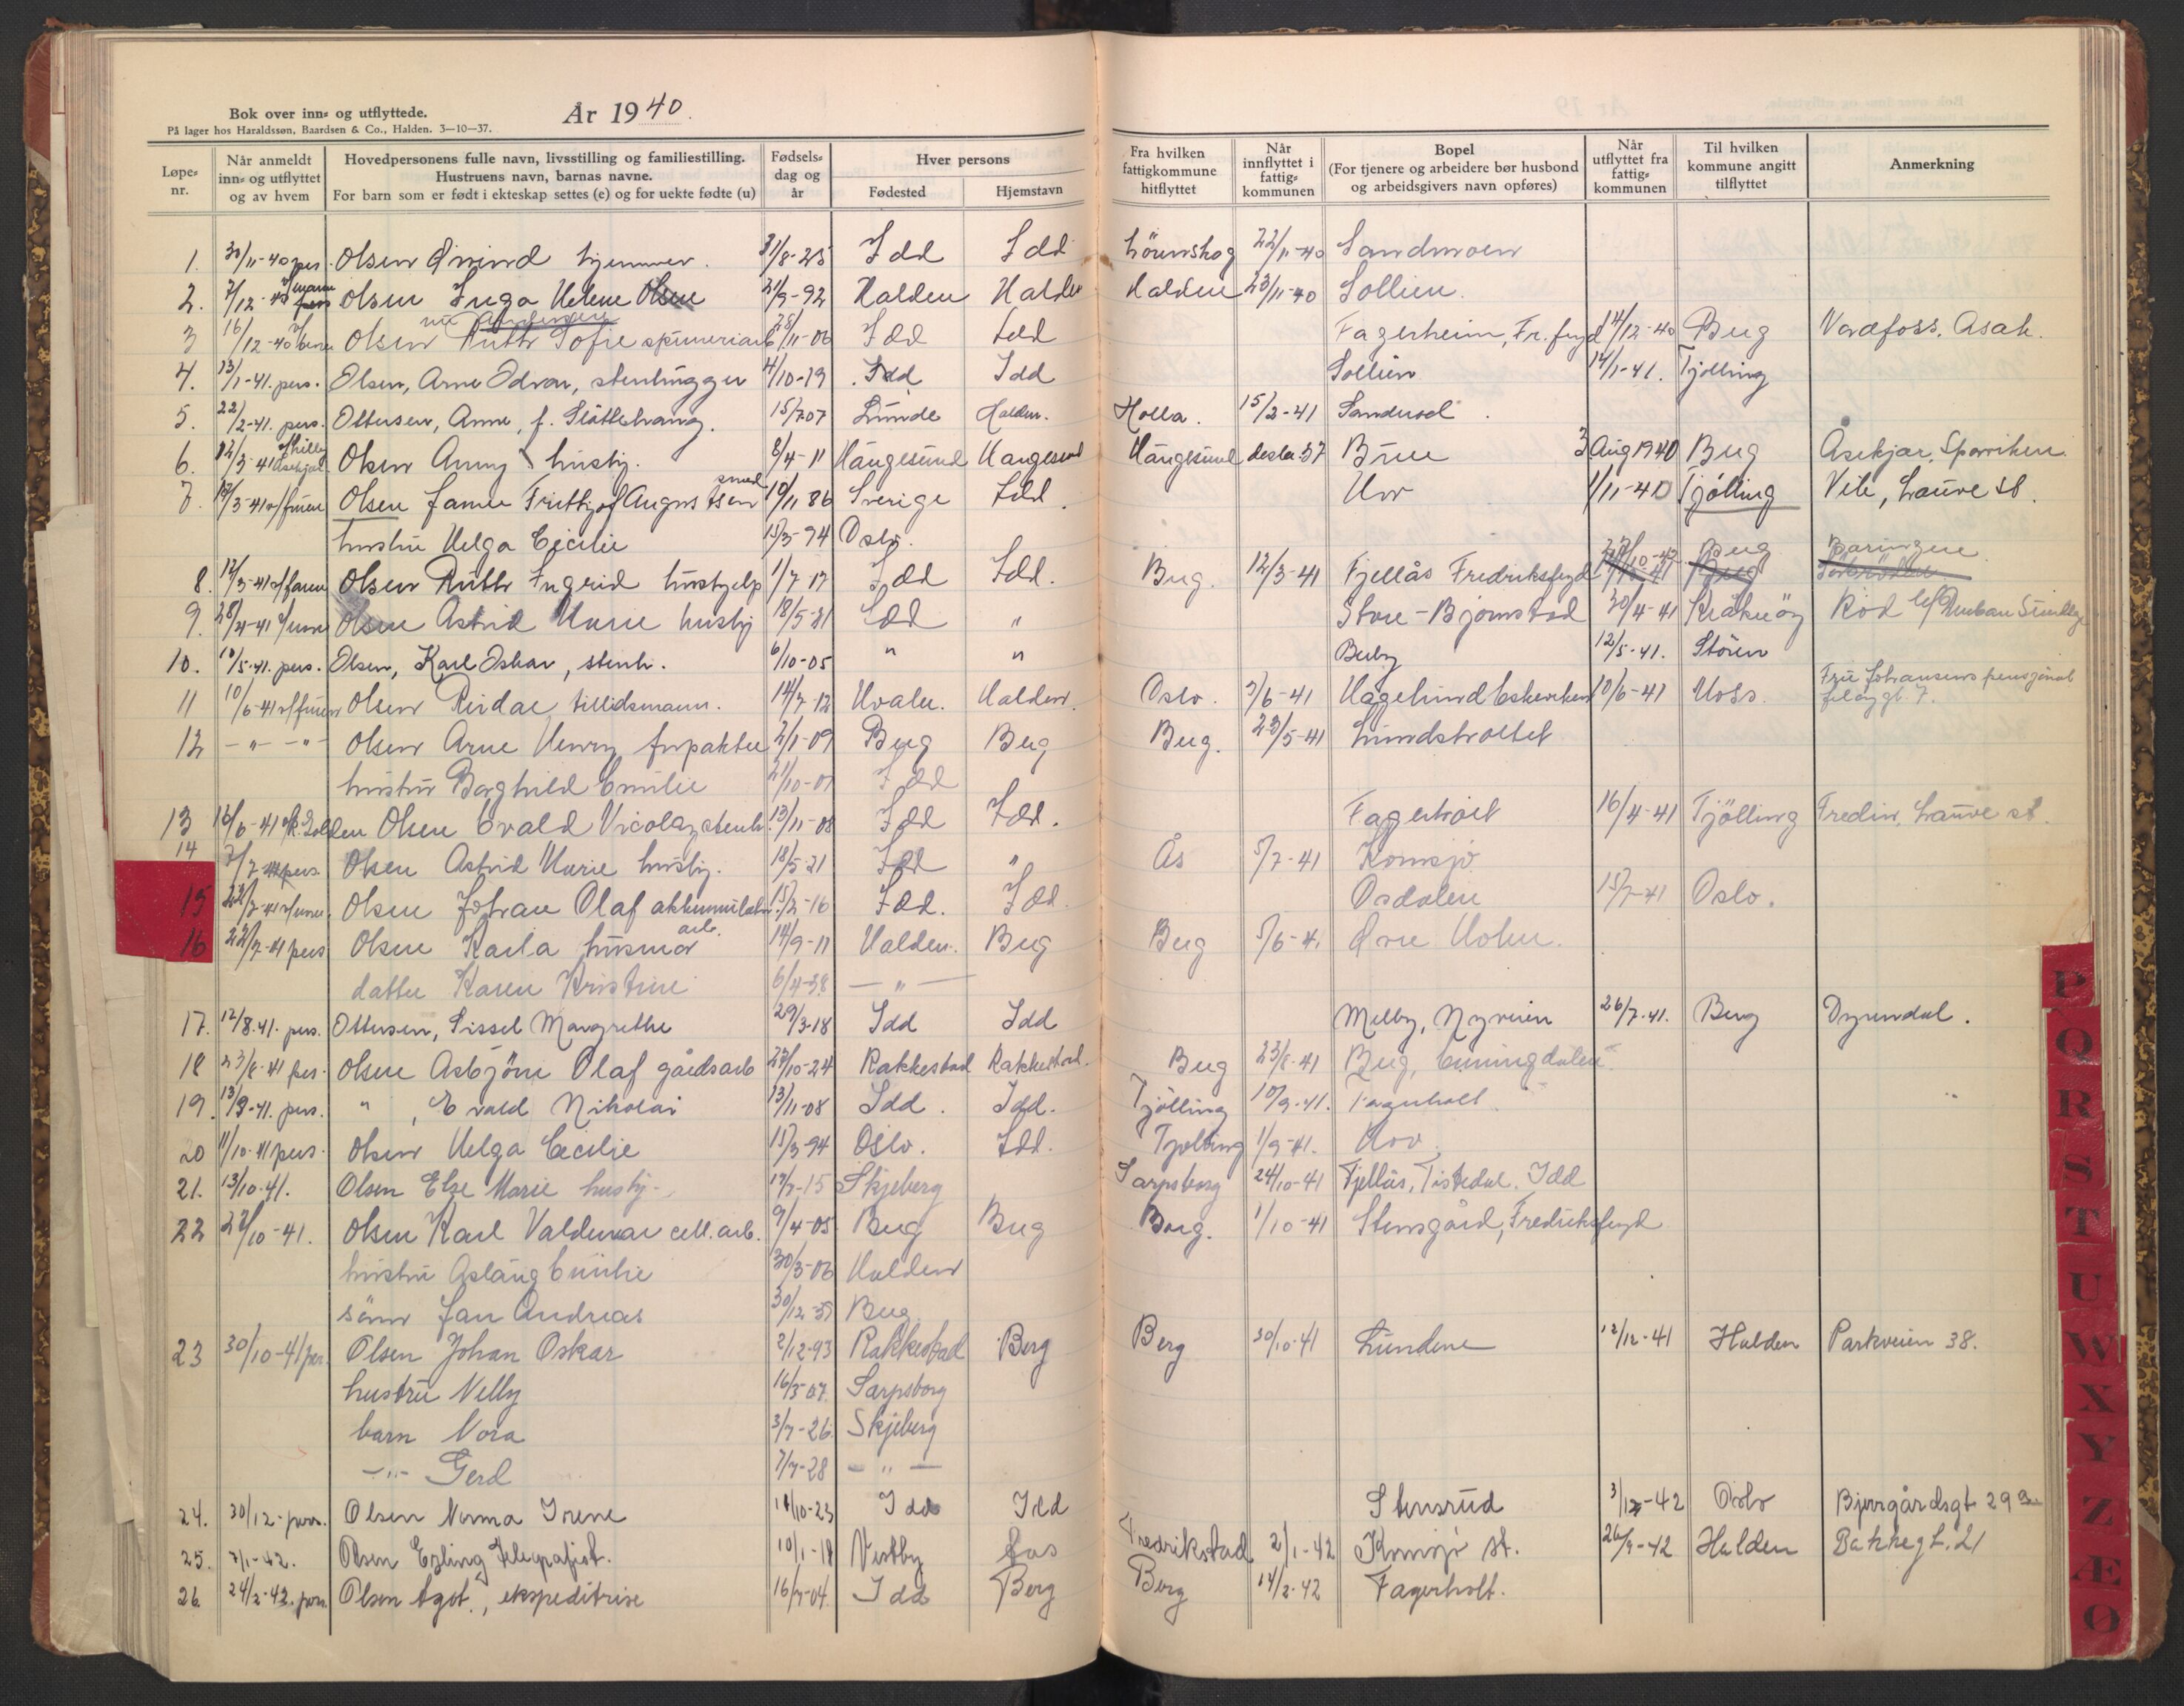 Bok over inn- og utflyttede. År 1940.
På lager hos Haraldssøn, Baardsen & Co., Halden. 3—10—37.
Løpe-nr. Når anmeldt inn- og utflyttet og av hvem Hovedpersonens fulle navn, livsstilling og familiestilling. Hustruens navn, barnas navne. For barn som er født i ekteskap settes (e) og for uekte fødte (u) Fødsels-dag og år Hver persons Fødested Hjemstavn Fra hvilken fattigkommune hitflyttet Når innflyttet i fattig-kommunen Bopel (For tjenere og arbeidere bør husbond og arbeidsgivers navn opføres) Når utflyttet fra fattig-kommunen Til hvilken kommune angitt tilflyttet Anmerkning
1. 30/11-40 pers. Olsen Øivind hjemmev. 31/8-25 Idd Idd Lörenskog 22/11-40 Sandmoen
2. 7/12-40 Olsen Inga Helene Olsen 21/9-92 Halden Halden Halden 23/11-40 Sollien.
3 16/12-40 Olsen Ruth Sofie spinneriarb 28/11-06 Idd Idd Fagerheim, Fr. fryd 14/12-40 Berg Vardefoss. Asak.
4. 13/1-41. pers. Olsen, Arne Odvar, stenhugger 4/10-19 Idd Idd Sollien 14/1-41. Tjölling
5. 22/2-41. pers. Ottersen, Anne, f. Slåttehaug. 15/7 07 Lunde Halden. Holla. 15/2-41 Sanderød.
6. 12/3-41 Olsen Anny hushj. 8/4-11 Haugesund Haugesund Haugesund desbr. 37 Brue 3 Aug 1940 Berg Åsekjær, Sparviken
7. 12/3-41 Olsen Janne Frithjof Augustsen smed 10/11 86 Sverige Idd. Hov 1/11-40 Tjölling Vik, Lauve st.
hustru Helga Cecilie 15/3-94 Oslo.
8. 12/3-41 Olsen Ruth Ingrid hushjelp 1/7-17 Idd Idd. Berg. 12/3-41 Fjellås Fredriksfryd Berg
9. 28/4-41 Olsen Astrid Marie hushj 18/5-21 Idd " Store-Bjørnstad 30/4-41 Kråkerøy Rød
10. 10/5-41. pers. Olsen, Karl Oskar, stenh. 6/10-05 " " Berby 12/5-41. Stören
11 10/6-41 Olsen Reidar tillidsmann. 14/7-12 Hvaler. Halden. Oslo. 5/6-41 10/6-41 Voss. Frü Johansens pensjonat
12 -"- -"- Olsen Arne Henry forpakter 2/1-09 Berg Berg Berg. 23/5-41
hustru Borghild Emilie 21/10-07 Idd
13 16/6-41 Olsen Evald Nicolay stenh. 13/11-08 Idd Idd. Fagerholt 16/4-41 Tjölling Fredin, Lauve st.
14 7/7 pers. Olsen Astrid Marie hushj. 18/5-21 Idd " Ås 5/7-41 Kornsjø
15 22/7-41 Olsen Johan Olaf akkumulator arb. 15/2-16 Idd. Idd. Osdalen 15/7-41 Oslo.
16 22/7-41 pers Olsen Karla husmor 14/9-11 Halden. Berg Berg 5/6-41 Øvre Holm.
datter Karen Kristine 6/4-38 — " —
17. 12/8.41. pers. Ottersen, Sissel Margrethe 29/3-18 Idd Idd Melby, Nyveien 26/7-41. Berg Dyrendal.
18 23/8-41 pers. Olsen Asbjörn Olaf gårdsarb 23/10-24 Rakkestad Rakkestad. Berg 23/8-41 Berg, Enningdalen
19. 13/9-41. pers. " , Evald Nikolai 13/11-08 Idd. Idd. Tjölling 10/9-41. Fagerholt
20 11/10-41 pers. Olsen Helga Cecilie 15/3-94 Oslo. Idd. Tjølling 1/9-41. Hov.
21. 13/10-41. Olsen Else Marie hushj. 17/7-15 Skjeberg Sarpsborg 24/10-41 Fjellås, Tistedal. Idd
22 27/10-41. Olsen Karl Valdemar cell. arb. 9/4-05 Berg Berg Berg. 1/10-41 Stensgård, Fredriksfryd
hustru Aslaug Emilie 30/3-06 Halden
sönn Jan Andreas 30/12-35 Berg
23 30/10-41 per. Olsen Johan Oskar 2/12-93 Rakkestad Berg Berg 30/10-41 Lundene 12/12-41 Halden Parkveien 38.
hustru Nelly 16/3-07 Sarpsborg
barn Nora 3/7-26 Skjeberg
-"- Gerd 7/7-28 — " —
24. 30/12-pers. Olsen Norma Irene 11/10-23 Idd Idd Stensrud 3/12-42 Oslo Bjerregårdsgt 29
25. 7/1-42. Olsen Erling telegrafist. 10/1-18 Vestby Fredrikstad 2/1-42 Kornsjö st. 26/9-42 Halden Bakkegt. 21
26. 24/2-42. pers. Olsen Agot., ekspeditrise 16/7-04. Idd Berg Berg 14/2-42 Fagerholt.
P
Q
R
S
T
U
W
X
Y
Z
Æ
Ø